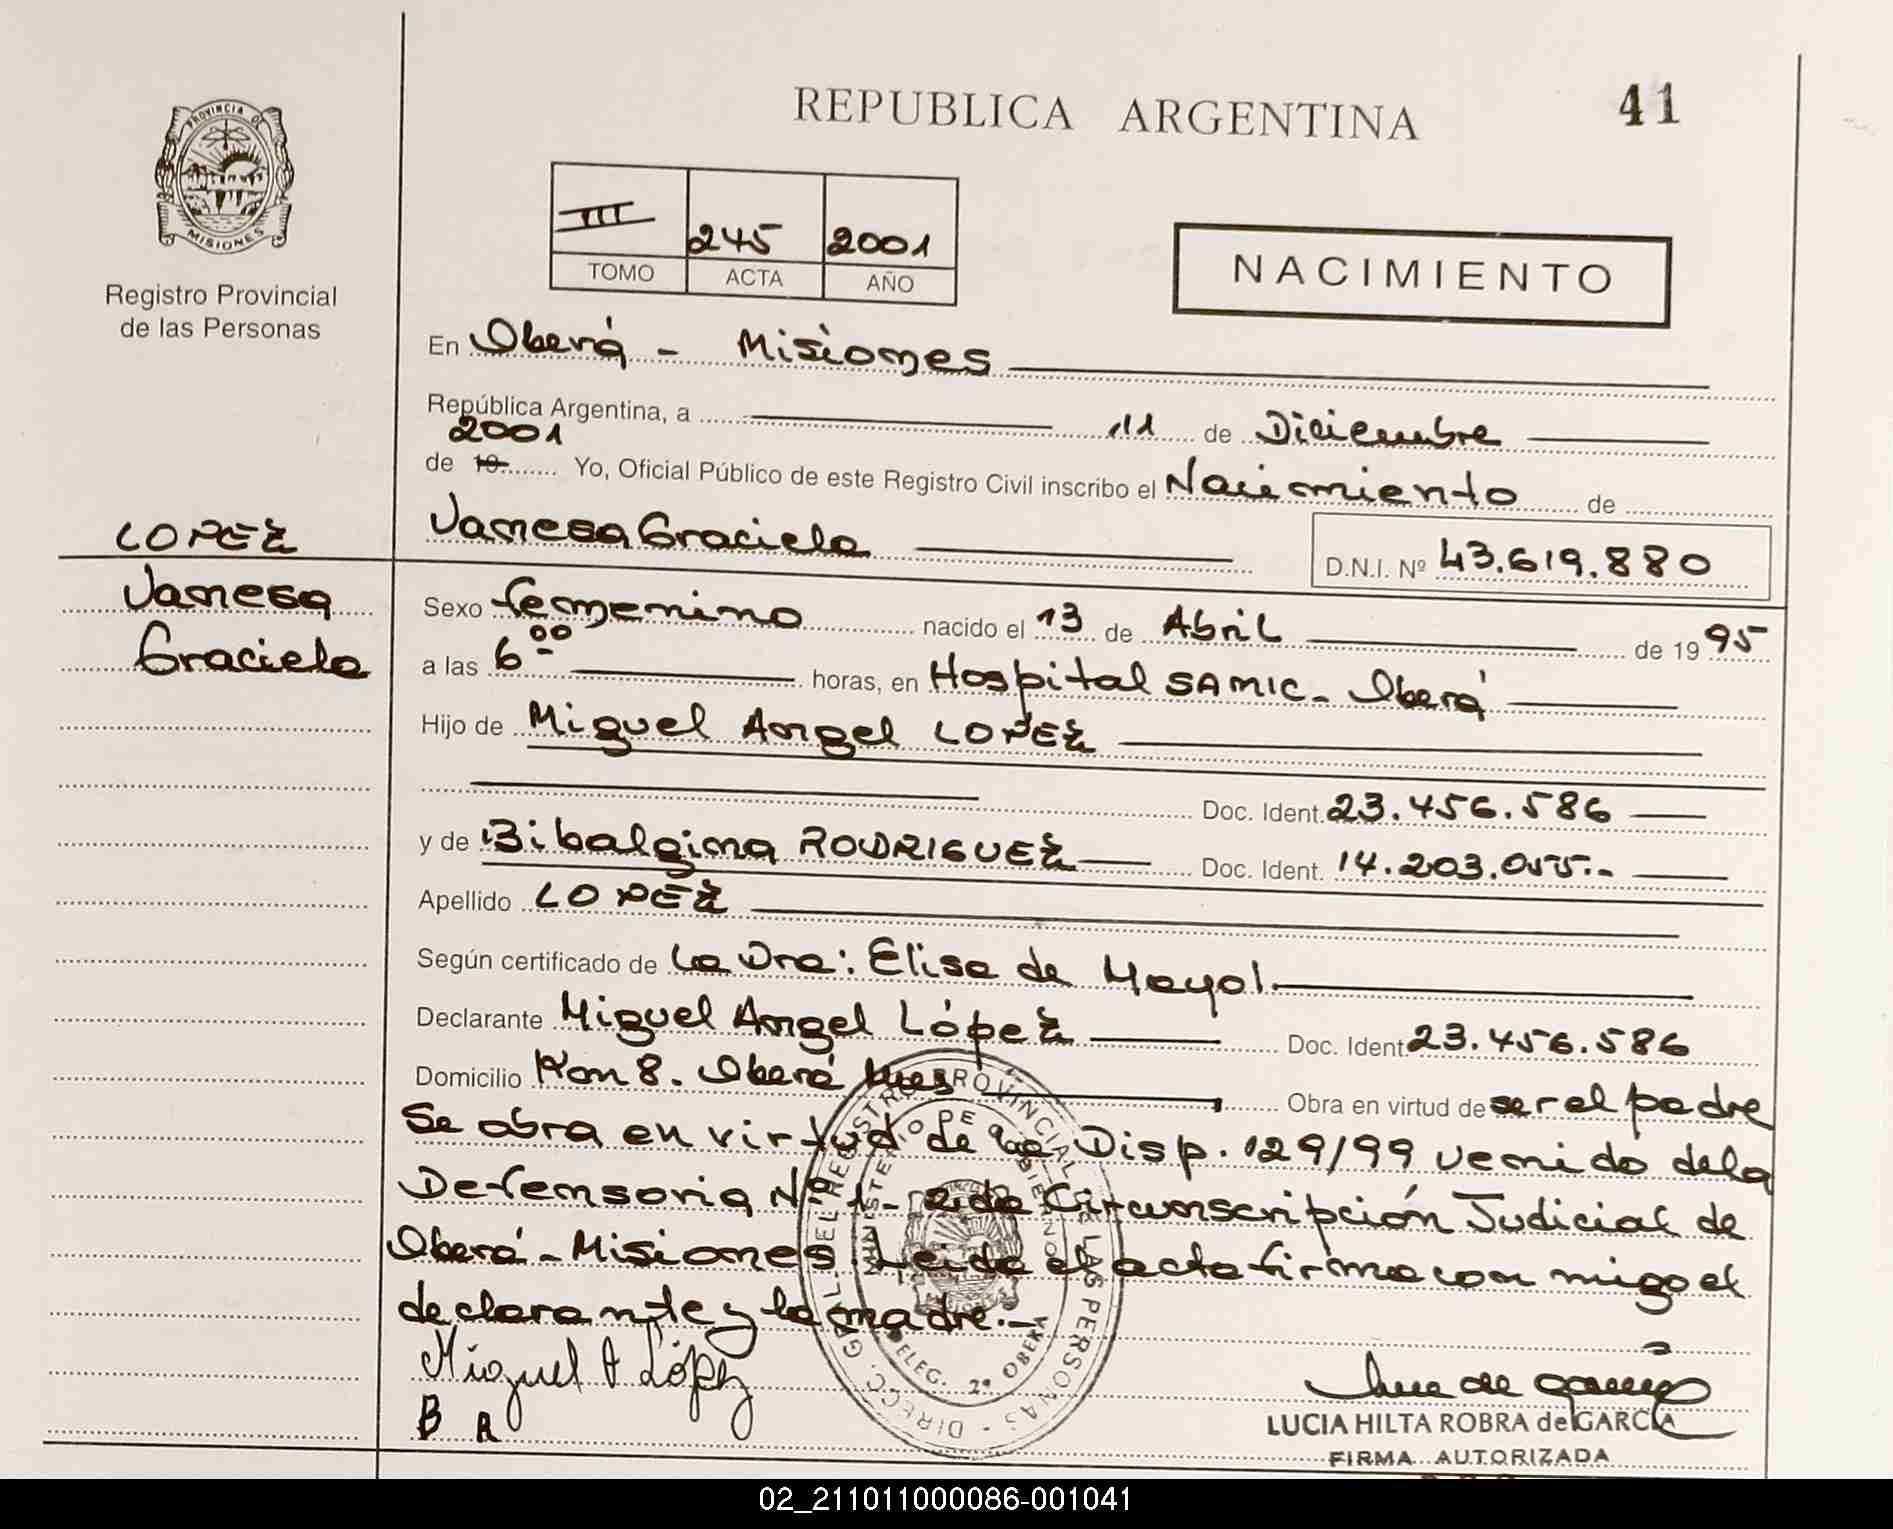 REPUBLICA ARGENTINA
41
PROVINCIA DE
MISIONES
Registro Provincial
de las Personas
III 245 2001
TOMO ACTA AÑO
NACIMIENTO
En Oberá - Misiones
República Argentina, a 11 de Diciembre
2001
de 19 Yo, Oficial Público de este Registro Civil inscribo el Nacimiento de
Vanesa Graciela D.N.I. Nº 43.619.880
LOPEZ
Vanesa
Graciela
Sexo femenino nacido el 13 de Abril de 1995
a las 6 00 horas, en Hospital SAMIC - Oberá
Hijo de Miguel Angel LOPEZ
Doc. Ident. 23.456.586
y de Bibalgina RODRIGUEZ Doc. Ident. 14.203.055.-
Apellido LOPEZ
Según certificado de La Dra: Elisa de Mayol.
Declarante Miguel Angel López Doc. Ident. 23.456.586
Domicilio Km 8. Oberá Mnes Obra en virtud de ser el padre
Se obra en virtud de la Disp. 129/99 venido dela
Defensoria Nº 1 - 2da Circunscripción Judicial de
Oberá - Misiones Leida el acta firma con migo el
declarante y la madre.-
Miguel A López
B R
DIRECC. GRAL. DEL REGISTRO PROVINCIAL DE LAS PERSONAS
MINISTERIO DE GOBIERNO
DELEG. 2ª OBERA
LUCIA HILTA ROBRA de GARCIA
FIRMA AUTORIZADA
02_211011000086-001041